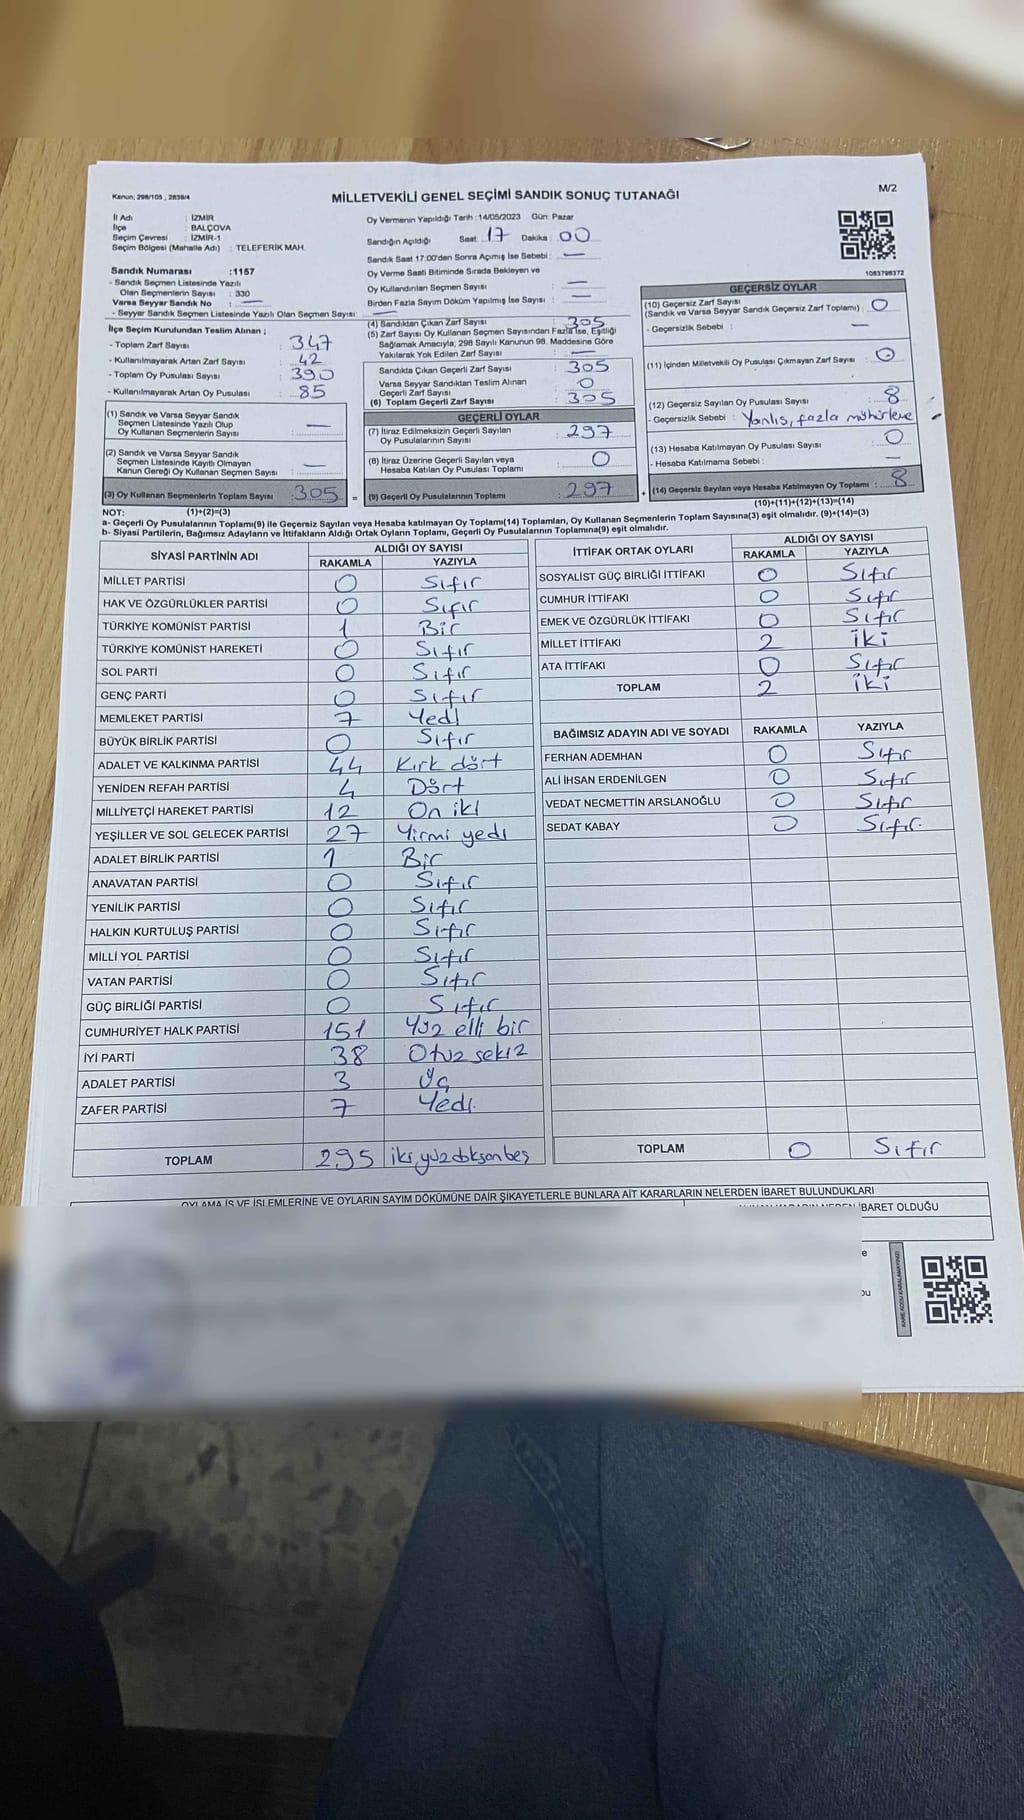 Kanun: 298/105 , 2839/4
MİLLETVEKİLİ GENEL SEÇİMİ SANDIK SONUÇ TUTANAĞI
M/2
İl Adı : İZMİR
İlçe : BALÇOVA
Seçim Çevresi : İZMİR-1
Seçim Bölgesi (Mahalle Adı) : TELEFERİK MAH.
Sandık Numarası :1157
- Sandık Seçmen Listesinde Yazılı
Olan Seçmenlerin Sayısı : 330
Varsa Seyyar Sandık No : —
- Seyyar Sandık Seçmen Listesinde Yazılı Olan Seçmen Sayısı: —
Oy Vermenin Yapıldığı Tarih :14/05/2023 Gün: Pazar
Sandığın Açıldığı Saat: 17 Dakika : 00
Sandık Saat 17:00'den Sonra Açımış İse Sebebi : —
Oy Verme Saati Bitiminde Sırada Bekleyen ve
Oy Kullandırılan Seçmen Sayısı : —
Birden Fazla Sayım Döküm Yapılmış İse Sayısı : —
1083798372
İlçe Seçim Kurulundan Teslim Alınan ;
- Toplam Zarf Sayısı : 347
- Kullanılmayarak Artan Zarf Sayısı : 42
- Toplam Oy Pusulası Sayısı : 390
- Kullanılmayarak Artan Oy Pusulası : 85
(1) Sandık ve Varsa Seyyar Sandık
Seçmen Listesinde Yazılı Olup
Oy Kullanan Seçmenlerin Sayısı : —
(2) Sandık ve Varsa Seyyar Sandık
Seçmen Listesinde Kayıtlı Olmayan
Kanun Gereği Oy Kullanan Seçmen Sayısı : —
(3) Oy Kullanan Seçmenlerin Toplam Sayısı : 305 =
(4) Sandıktan Çıkan Zarf Sayısı : 305
(5) Zarf Sayısı Oy Kullanan Seçmen Sayısından Fazla İse, Eşitliği
Sağlamak Amacıyla, 298 Sayılı Kanunun 98. Maddesine Göre
Yakılarak Yok Edilen Zarf Sayısı : —
Sandıkta Çıkan Geçerli Zarf Sayısı : 305
Varsa Seyyar Sandıktan Teslim Alınan
Geçerli Zarf Sayısı : 0
(6) Toplam Geçerli Zarf Sayısı : 305
GEÇERLİ OYLAR
(7) İtiraz Edilmeksizin Geçerli Sayılan
Oy Pusulalarının Sayısı : 297
(8) İtiraz Üzerine Geçerli Sayılan veya
Hesaba Katılan Oy Pusulası Toplamı : 0
(9) Geçerli Oy Pusulalarının Toplamı : 297 +
GEÇERSİZ OYLAR
(10) Geçersiz Zarf Sayısı
(Sandık ve Varsa Seyyar Sandık Geçersiz Zarf Toplamı) : 0
- Geçersizlik Sebebi : —
(11) İçinden Milletvekili Oy Pusulası Çıkmayan Zarf Sayısı : 0
(12) Geçersiz Sayılan Oy Pusulası Sayısı : 8
- Geçersizlik Sebebi : Yanlış, fazla mühürleme
(13) Hesaba Katılmayan Oy Pusulası Sayısı : 0
- Hesaba Katılmama Sebebi : —
(14) Geçersiz Sayılan veya Hesaba Katılmayan Oy Toplamı : 8
(10)+(11)+(12)+(13)=(14)
NOT: (1)+(2)=(3)
a- Geçerli Oy Pusulalarının Toplamı(9) ile Geçersiz Sayılan veya Hesaba katılmayan Oy Toplamı(14) Toplamları, Oy Kullanan Seçmenlerin Toplam Sayısına(3) eşit olmalıdır. (9)+(14)=(3)
b- Siyasi Partilerin, Bağımsız Adayların ve İttifakların Aldığı Ortak Oyların Toplamı, Geçerli Oy Pusulalarının Toplamına(9) eşit olmalıdır.
SİYASİ PARTİNİN ADI ALDIĞI OY SAYISI
RAKAMLA YAZIYLA
MİLLET PARTİSİ 0 Sıfır
HAK VE ÖZGÜRLÜKLER PARTİSİ 0 Sıfır
TÜRKİYE KOMÜNİST PARTİSİ 1 Bir
TÜRKİYE KOMÜNİST HAREKETİ 0 Sıfır
SOL PARTİ 0 Sıfır
GENÇ PARTİ 0 Sıfır
MEMLEKET PARTİSİ 7 Yedi
BÜYÜK BİRLİK PARTİSİ 0 Sıfır
ADALET VE KALKINMA PARTİSİ 44 Kırk dört
YENİDEN REFAH PARTİSİ 4 Dört
MİLLİYETÇİ HAREKET PARTİSİ 12 On iki
YEŞİLLER VE SOL GELECEK PARTİSİ 27 Yirmi yedi
ADALET BİRLİK PARTİSİ 1 Bir
ANAVATAN PARTİSİ 0 Sıfır
YENİLİK PARTİSİ 0 Sıfır
HALKIN KURTULUŞ PARTİSİ 0 Sıfır
MİLLİ YOL PARTİSİ 0 Sıfır
VATAN PARTİSİ 0 Sıfır
GÜÇ BİRLİĞİ PARTİSİ 0 Sıfır
CUMHURİYET HALK PARTİSİ 151 Yüz elli bir
İYİ PARTİ 38 Otuz sekiz
ADALET PARTİSİ 3 Üç
ZAFER PARTİSİ 7 Yedi.
TOPLAM 295 iki yüz doksan beş
İTTİFAK ORTAK OYLARI ALDIĞI OY SAYISI
RAKAMLA YAZIYLA
SOSYALİST GÜÇ BİRLİĞİ İTTİFAKI 0 Sıfır
CUMHUR İTTİFAKI 0 Sıfır
EMEK VE ÖZGÜRLÜK İTTİFAKI 0 Sıfır
MİLLET İTTİFAKI 2 İki
ATA İTTİFAKI 0 Sıfır
TOPLAM 2 İki
BAĞIMSIZ ADAYIN ADI VE SOYADI RAKAMLA YAZIYLA
FERHAN ADEMHAN 0 Sıfır
ALİ İHSAN ERDENİLGEN 0 Sıfır
VEDAT NECMETTİN ARSLANOĞLU 0 Sıfır
SEDAT KABAY 0 Sıfır.
TOPLAM 0 Sıfır
OYLAMA İŞ VE İŞLEMLERİNE VE OYLARIN SAYIM DÖKÜMÜNE DAİR ŞİKAYETLERLE BUNLARA AİT KARARLARIN NELERDEN İBARET BULUNDUKLARI
İBARET OLDUĞU